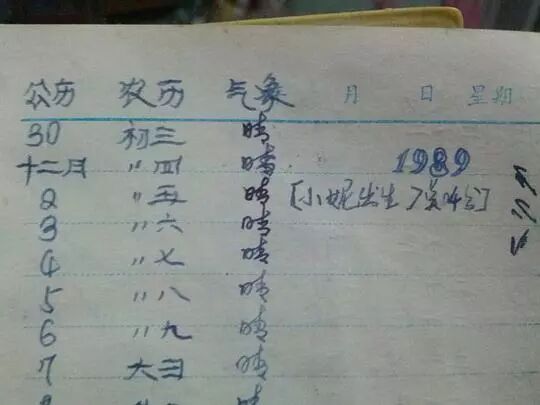 公历 农历 气象 月 日 星期
30 初三 晴
十二月 〃四 晴 1989
2 〃五 晴 [小妮出生
3 〃六 晴
4 〃七 晴
5 〃八 晴
6 〃九 晴
7 大彐 晴